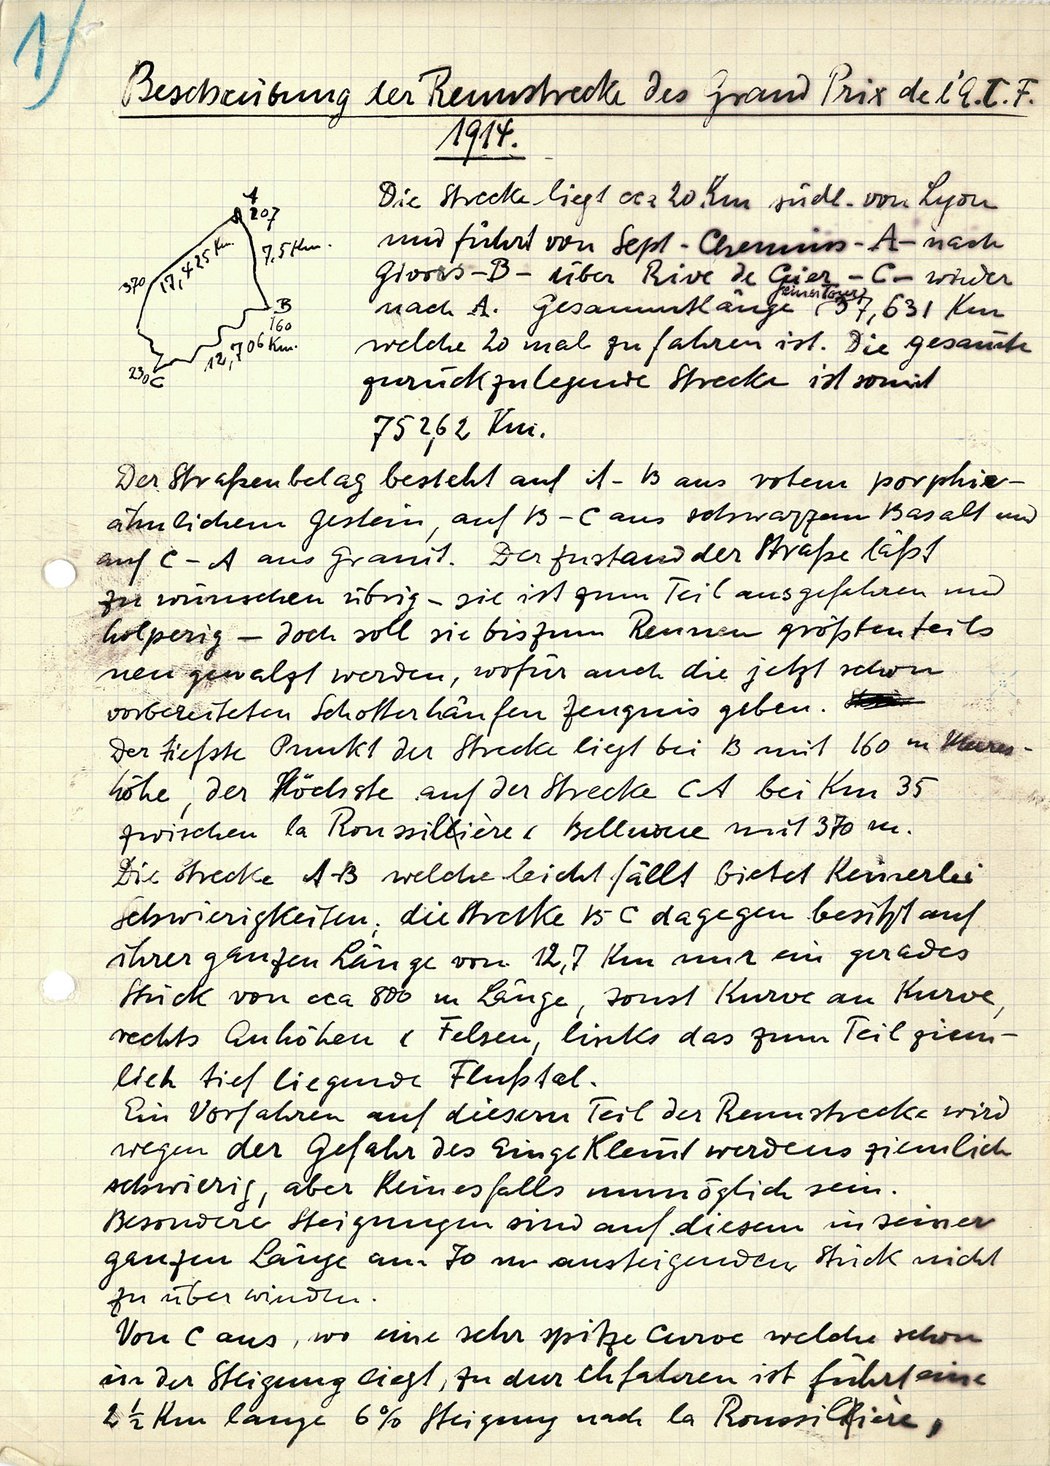 1)
Beschreibung der Rennstrecke des Grand Prix de l'A.C.F.
1914.
A
207
7,5 Km.
17,425 Km.
370
B
160
12,706 Km.
230 C
Die Strecke liegt cca 20 Km südl. von Lyon
und führt von Sept - Chemins - A - nach
Givors - B - über Rive de Gier - C - wieder
nach A. Gesammtlänge (einer Tour) 37,631 Km
welche 20 mal zu fahren ist. Die gesamte
zurückzulegende Strecke ist somit
752,62 Km.
Der Straßenbelag besteht auf A - B aus rotem porphir-
ähnlichem Gestein, auf B - C aus schwarzem Basalt und
auf C - A aus Granit. Der Zustand der Straße läßt
zu wünschen übrig - sie ist zum Teil ausgefahren und
holperig - doch soll sie bis zum Rennen größtenteils
neu gewalzt werden, wofür auch die jetzt schon
vorbereiteten Schotterhäufen Zeugnis geben.
Der tiefste Punkt der Strecke liegt bei B mit 160 m Meeres-
höhe, der Höchste auf der Strecke CA bei Km 35
zwischen la Roussillière & Bellevue mit 370 m.
Die Strecke A-B welche leicht fällt bietet keinerlei
Schwierigkeiten, die Strecke B C dagegen besitzt auf
ihrer ganzen Länge von 12,7 Km nur ein gerades
Stück von cca 800 m Länge, sonst Kurve an Kurve,
rechts Anhöhen & Felsen, links das zum Teil ziem-
lich tief liegende Flußtal.
Ein Vorfahren auf diesem Teil der Rennstrecke wird
wegen der Gefahr des Eingeklemmt werdens ziemlich
schwierig, aber keinesfalls unmöglich sein.
Besondere Steigungen sind auf diesem in seiner
ganzen Länge um 70 m ansteigenden Stück nicht
zu überwinden.
Von C aus, wo eine sehr spitze Curve welche schon
in der Steigung liegt, zu durchfahren ist führt eine
2 ½ Km lange 6% Steigung nach la Roussillière,